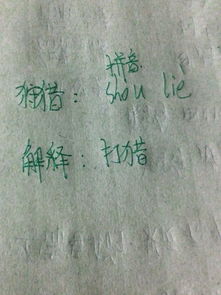 拼音
狩猎：shou lie
解释：打猎